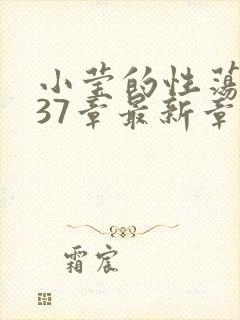 小莹的性荡
37章最新章
霜宸